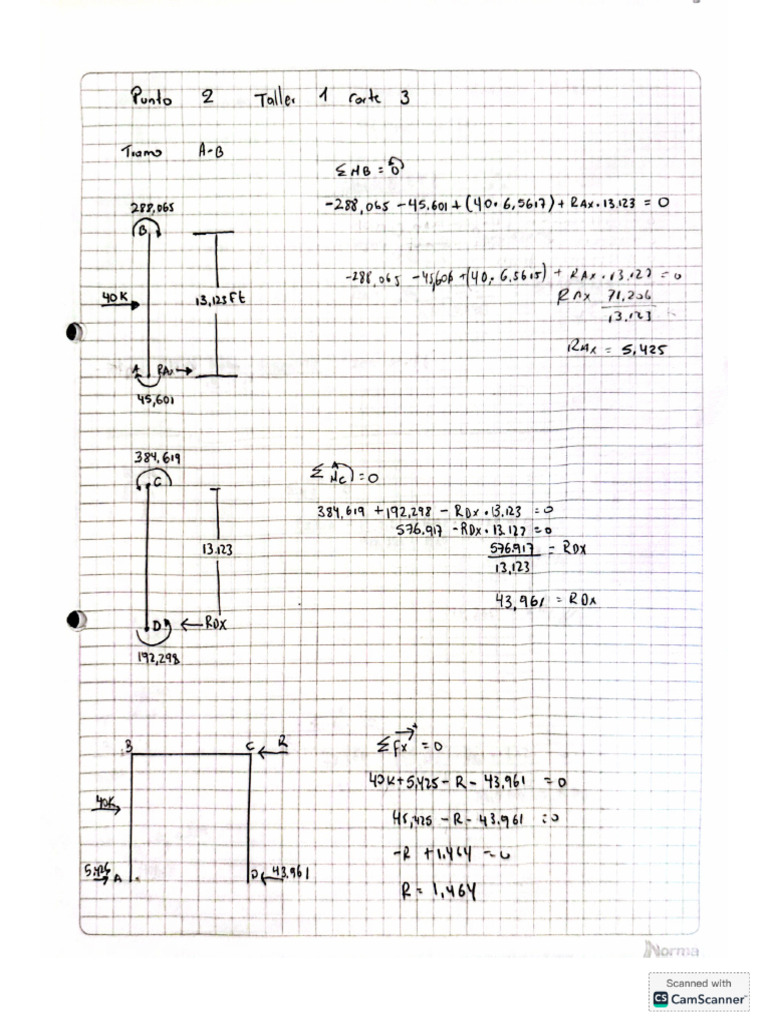 Punto 2 Taller 1 corte 3
Tramo A-B
ΣMB = 0
288,065
-288,065 -45.601 + (40 · 6,5617) + RAx · 13.123 = 0
B
-288,065 -45,606 + (40, 6.5615) + RAx · 13.127 = 0
40K
13,123 Ft
RAx 71,206
13.123
RAx = 5,425
A RAx
45,601
384,619
ΣMC = 0
C
384,619 + 192,298 - RDx · 13.123 = 0
576.917 - RDx · 13.127 = 0
13.123
576.917 = RDx
13,123
43,961 = RDx
D RDX
192,298
B C R
ΣFx = 0
40K + 5,425 - R - 43,961 = 0
40K
45,425 - R - 43.961 = 0
-R + 1.464 = 0
A D 43.961
R = 1,464
Norma
Scanned with
CS CamScanner